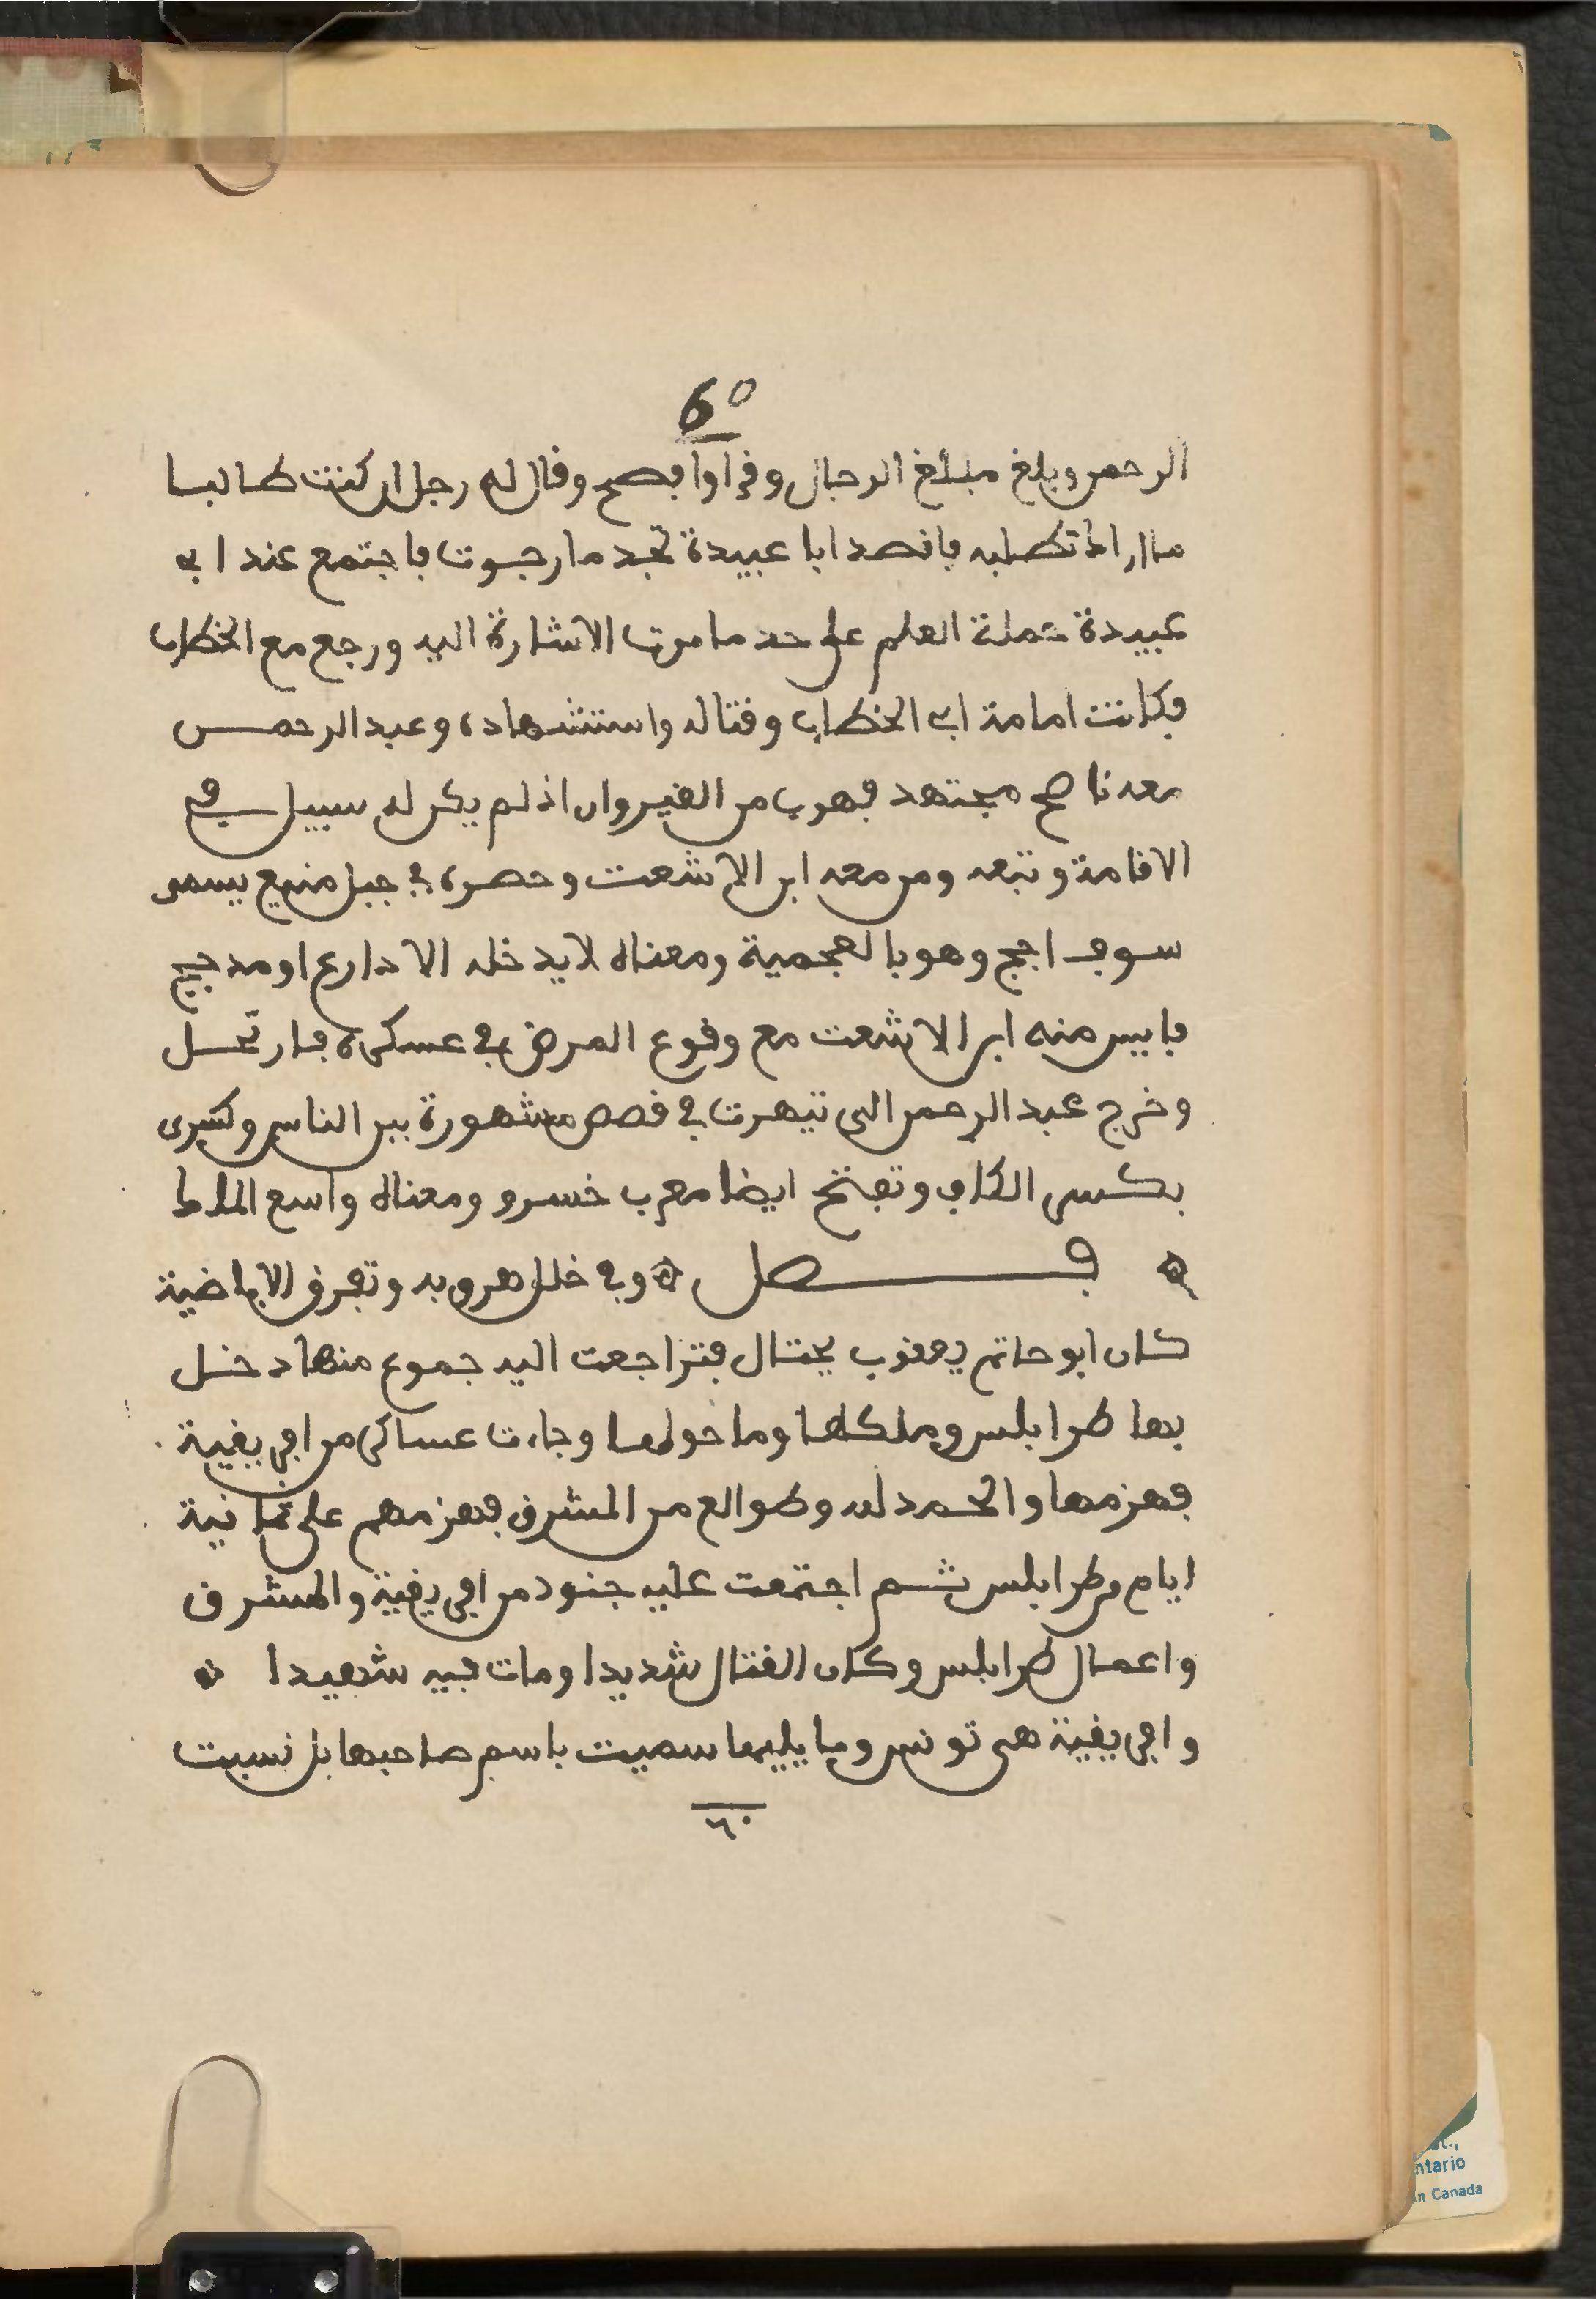 60
الرحمن وبلغ مبلغ الرجال وقرا وافصح وقال له رجل ان كنت طالبا
ما اراك تطلبه فاقصد ابا عبيدة تجد ما رجوت فاجتمع عند ابى
عبيدة حملة العلم على حد ما مرت الاشارة اليه ورجع مع الخطاب
فكانت امامة ابى الخطاب وقتاله واستشهاده وعبد الرحمن
معه ناصح مجتهد فهرب من القيروان اذ لم يكن له سبيل في
الاقامة وتبعه ومن معه ابن الاشعت وحصره في جبل منيع يسمى
سوف اجج وهو بالعجمية ومعناه لا يدخله الا دارع او مدجج
فايس منه ابن الاشعت مع وقوع المرض في عسكره فارتحل
وخرج عبد الرحمن الى تيهرت في قصص مشهورة بين الناس وكسرى
بكسر الكاف وتفتح ايضا معرب خسرو ومعناه واسع الملك
فصل وفي خلل هروبه وتفرق الاباضية
كان ابو حاتم يعقوب يحتال فتراجعت اليه جموع منها دخل
بها طرابلس وملكها وما حولها وجاءت عساكر من افريقية
فهزمها والحمد لله وطوالع من المشرق فهزمهم على ثمانية
ايام من طرابلس ثم اجتمعت عليه جنود من افريقية والمشرق
واعمال طرابلس وكان القتال شديدا ومات فيه شهيدا
وافريقية هى تونس وما يليها سميت باسم صاحبها بل نسبت
٦٠
st.,
ntario
in Canada